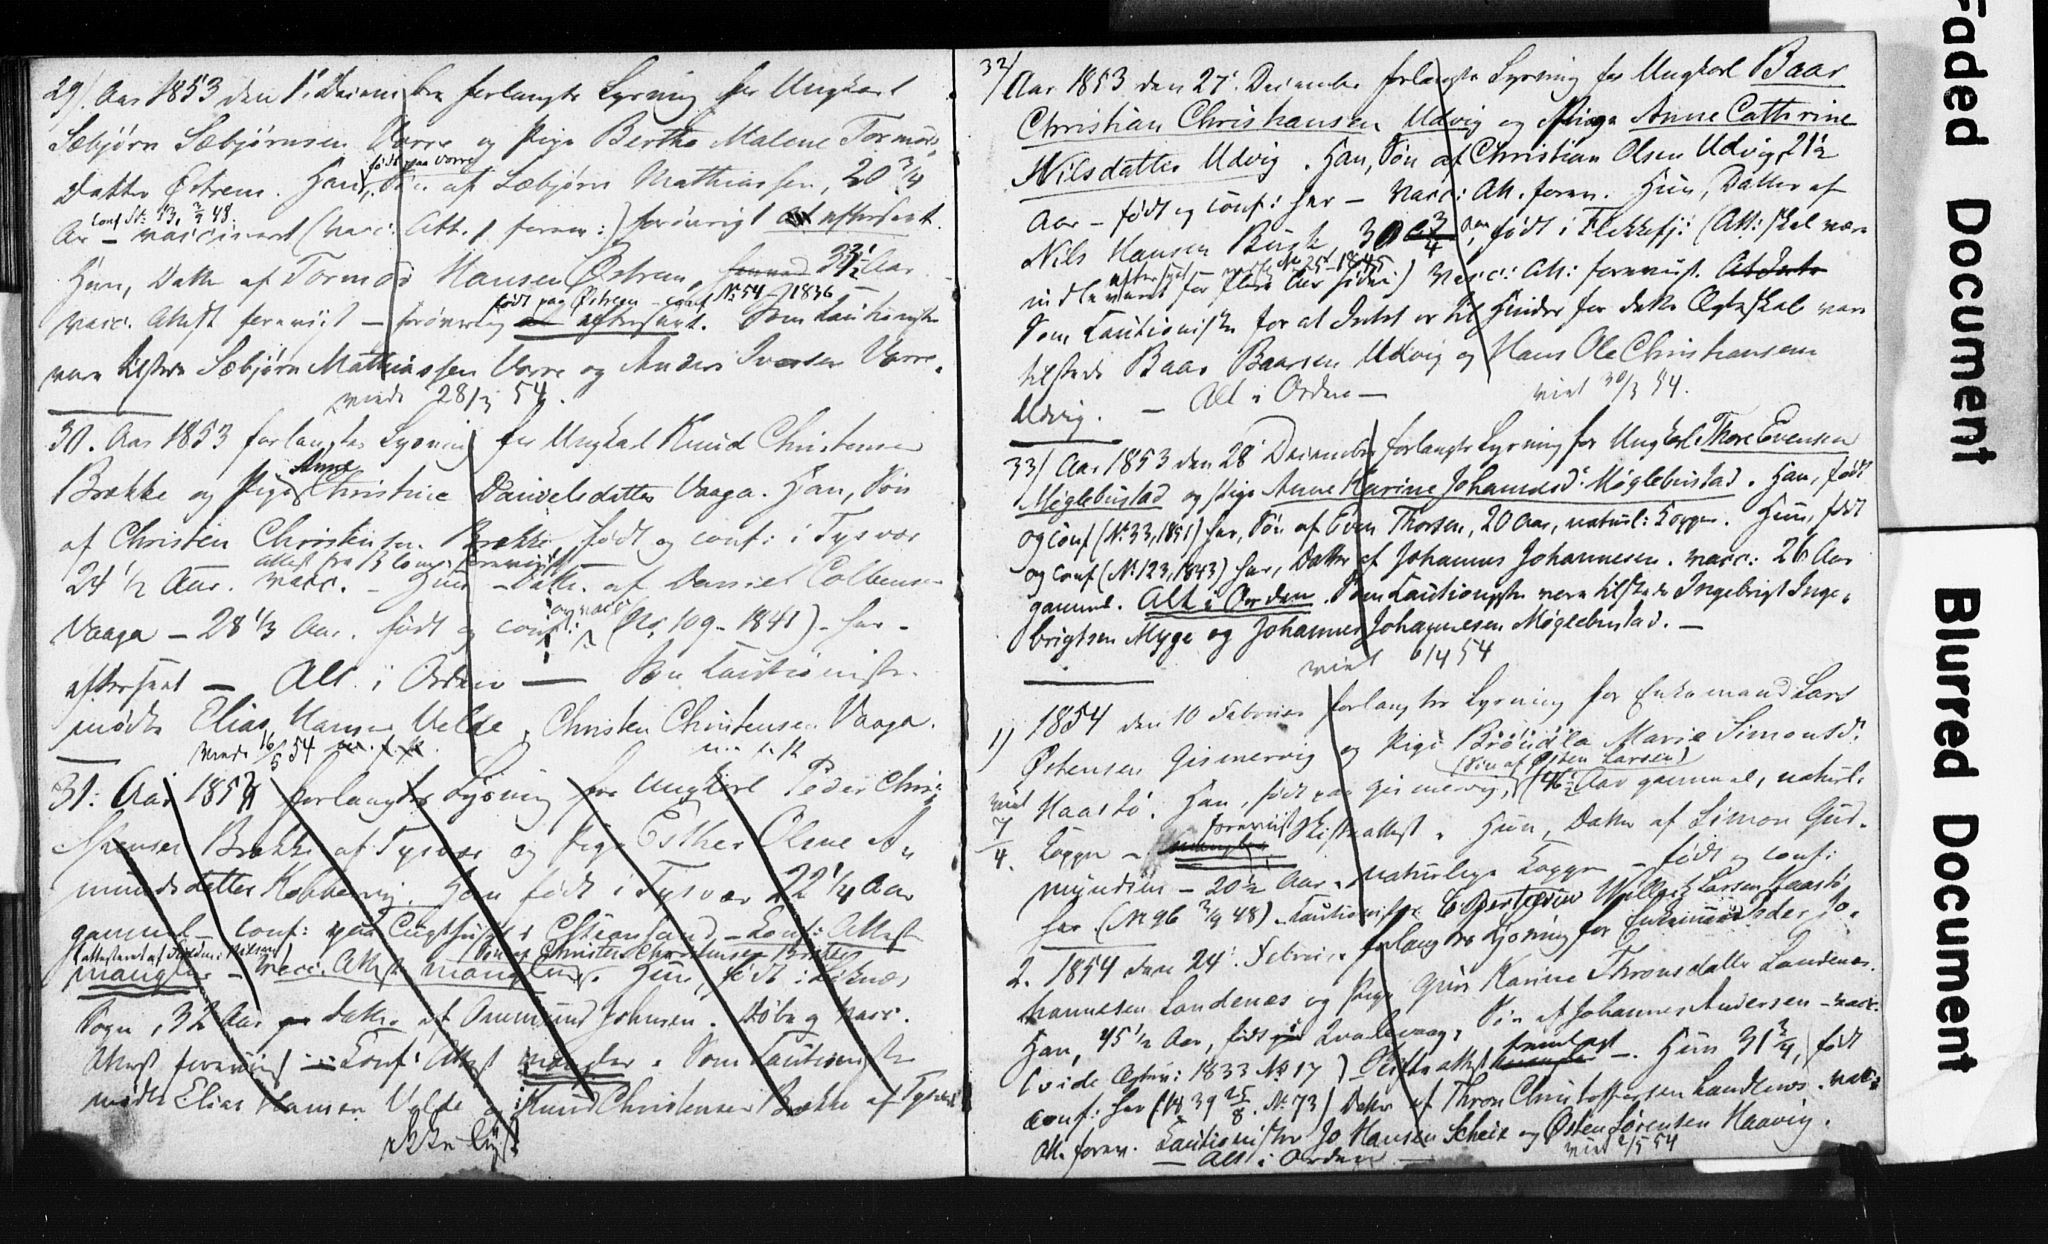 29/. Aar 1853 den 1' Decembr forlangtes Lysning for Ungkarl
Sæbjørn Sæbjørnsen Vorre og Pige Berthe Malene Tormods
Datter Østrem. Han, født paa Vorre, Søn af Sæbjørn Mathiassen, 20 3/4
Aar conf. No 13, 48. – vaccineret (vacc: Att. forev:) forøvrigt at eftersaet.
Hun, Datter af Tormod Hansen Østrem, 33 1/2 Aar
vacc. Attest foreviist – forøvrig at eftersaet. født paa Østrem – conf No 54 – 1836 Som Cautionister
vare tilstede Sæbjørn Mathiassen Vorre og Anders Iversen Vorre.
viede 28/3 54.
30. Aar 1853 forlangtes Lysning for Ungkal Knud Christensen
Brække og Pige Anne Christine Danielsdatter Vaaga. Han, Søn
af Christen Christensen Brække, født og conf: i Tysvær
24 1/2 Aar. vacc. attest fra foreviist – Hun – Datter af Daniel Colbensen
Vaaga – 28 1/3 Aar. født og conf: og vacc: (No. 109 – 1841) – her –
eftersaet – Alt i Orden — Som Cautionister
mødte Elias Hansen Velde, Christen Christensen Vaaga.
Viede 16/5 54
31: Aar 1854 forlangtes Lysning for Ungkarl Peder Chri-
stensen Brække af Tysvær og Pige Esther Oline A-
mundsdatter Kobbervig. Han født i Tysvær 22 1/4 Aar
gammel – conf: paa Tugthuset i Chstiansand – Conf: Attest
mangler – vacc: Attest mangler. Søn af Christen Christensen Brække Hun, født i
Sogn, 32 Aar Datter af Ommund Johnsen. Døbe og vacc.
Attest foreviist – Conf: Attest mangler. Som Cautionister
mødte Elias Hansen Velde og Knud Christensen Brække af Tysvær
ikke lyst
32/ Aar 1853 den 27' December forlangtes Lysning for Ungkarl Baar
Christian Christiansen Udvig og Pige Anne Cathrine
Nilsdatter Udvig. Han, Søn af Christian Olsen Udvig, 21 1/2
Aar – født og conf: her – vacc: Att. forev. Hun, Datter af
Nils Hansen Busk, 30 3/4 Aar, født i Flekkefj: (Att: skal være
indleveret for flere Aar siden) eftersaet – No 25 – 1845 vacc: Att: foreviist.
Som Cautionister for at Intet er til Hinder for dette Ægteskab vare
tilstede Baar Baarsen Udvig og Hans Ole Christiansen
Udvig. — Alt i Orden — viet 30/3 54.
33/ Aar 1853 den 28 December forlangtes Lysning for Ungkarl Thore Evensen
Møglebustad og Pige Anne Karine Johannesd: Møglebustad. Han, født
og conf (No 33, 1851) her, Søn af Even Thorsen, 20 Aar, naturl: Kopper. Hun, født
og conf (No 123, 1843) her, Datter af Johannes Johannesen. vacc: 26 Aar
gammel. Alt i Orden. Som Cautionister vare tilstede Ingebrigt Inge-
brigtsen Myge og Johannes Johannesen Møglebustad. —
viet 6/4 54
1) 1854 den 10 Februar forlangtes Lysning for Enkemand Lars
Østensen Gismervig og Pige Brønla Marie Simonsd:
Haastø. Han, født paa Gismervig, (Søn af Østen Larsen) 46 1/2 Aar gammel, naturl:
viet 7/4. Kopper – foreviist Skifteattest. Hun, Datter af Simon Gud-
mundsen – 20 1/2 Aar. naturlige Kopper – født og conf:
her (No 96 48). Cautionister Larsen Haastø
2. 1854 den 24' Februar forlangtes Lysning for Enkemand Peder Jo-
hannesen Landenæs og Pige Guri Karine Thronsdatter Landenæs.
Han, 45 1/2 Aar, født i Qvalevaag, Søn af Johannes Andersen – vacc.
(vide Ægtev: 1833 No 17) Skifteattest foreviist –. Hun 31 3/4, født
conf: her (No 39 25/8. No 73) Datter af Thron Christoffersen Landenæs. vacc:
Att. forev. Cautionister Jo Hansen Scheie og Østen Sørensen Haavig.
— Alt i Orden — viet 2/5 54
Faded Document
Blurred Document